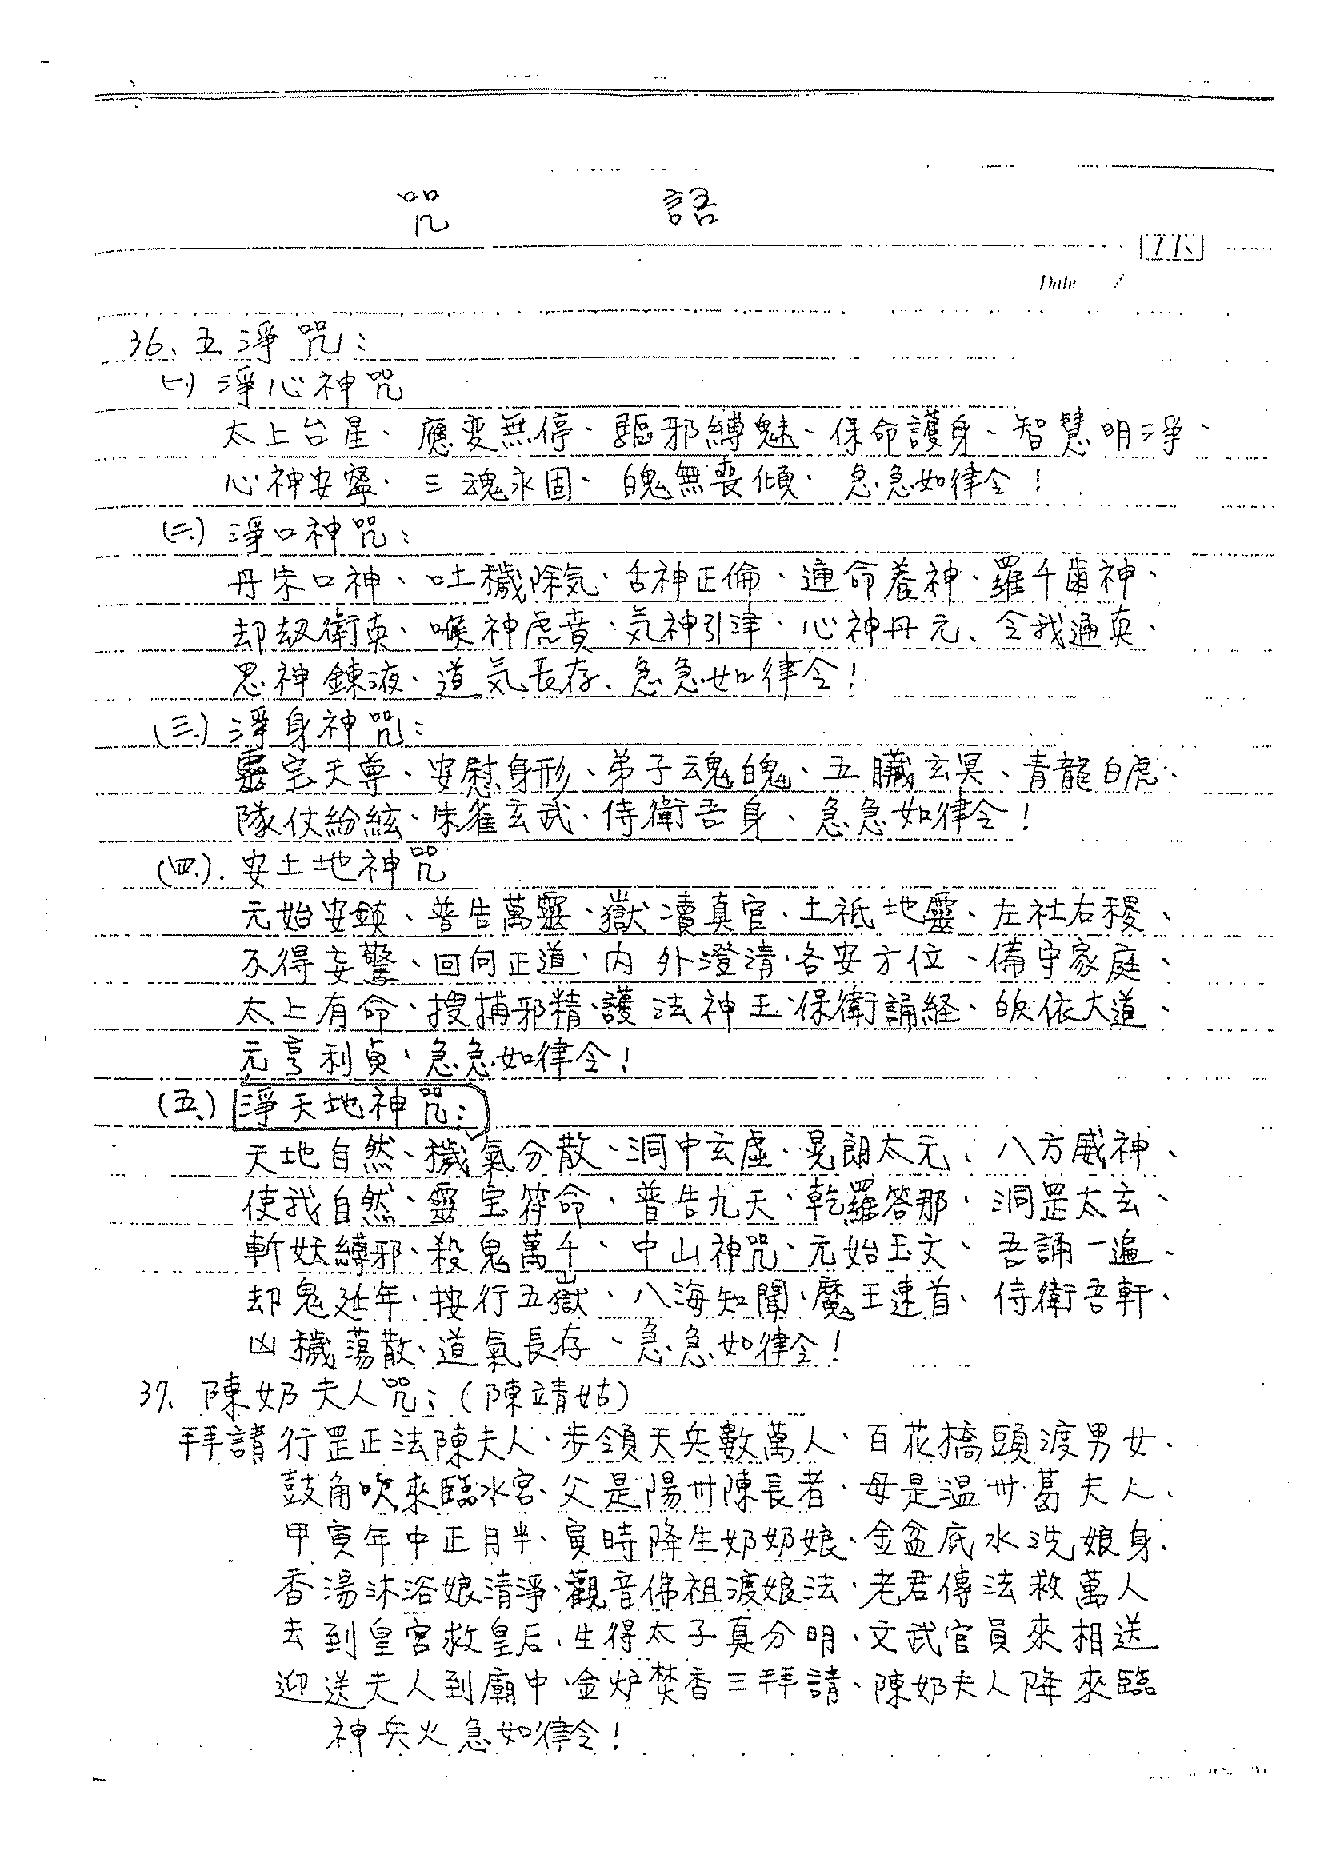 咒 語
Date /
36、五淨咒：
(一) 淨心神咒
太上台星、應变無停、驅邪縛魅、保命護身、智慧明淨、
心神安寧、三魂永固、魄無喪傾、急急如律令！
(二) 淨口神咒：
丹朱口神、吐穢除気、舌神正倫、通命養神、羅千齒神、
却劫衛真、喉神虎賁、気神引津、心神丹元、令我通真、
思神鍊液、道気長存、急急如律令！
(三) 淨身神咒：
靈宝天尊、安慰身形、弟子魂魄、五臟玄冥、青龍白虎、
隊仗紛絃、朱雀玄武、侍衛吾身、急急如律令！
(四). 安土地神咒
元始安鎮、普告萬靈、嶽瀆真官、土祇地靈、左社右稷、
不得妄驚、回向正道、內外澄清、各安方位、備守家庭、
太上有命、搜捕邪精、護法神王、保衛誦経、皈依大道、
元亨利貞、急急如律令！
(五) 淨天地神咒：
天地自然、穢氣分散、洞中玄虛、晃朗太元、八方威神、
使我自然、靈宝符命、普告九天、乾羅答那、洞罡太玄、
斬妖縛邪、殺鬼萬千、中山神咒、元始玉文、吾誦一遍、
却鬼延年、按行五嶽、八海知聞、魔王速首、侍衛吾軒、
凶穢蕩散、道氣長存、急急如律令！
37. 陳奶夫人咒：(陳靖姑)
拜請行罡正法陳夫人、步領天兵數萬人、百花橋頭渡男女、
鼓角吹來臨水宮、父是陽卅陳長者、母是溫卅葛夫人、
甲寅年中正月半、寅時降生奶奶娘、金盆底水洗娘身、
香湯沐浴娘清淨、觀音佛祖渡娘法、老君傳法救萬人
去到皇宮救皇后、生得太子真分明、文武官員來相送
迎送夫人到廟中、金炉焚香三拜請、陳奶夫人降來臨
神兵火急如律令！